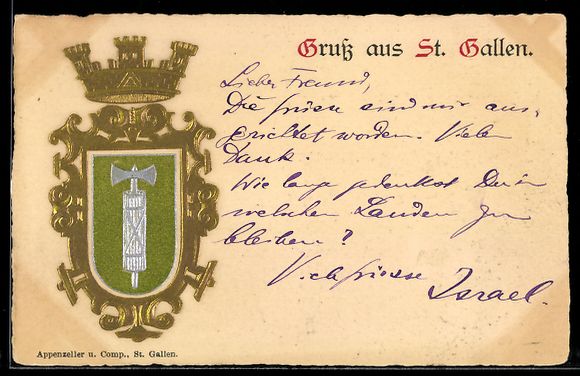 Gruß aus St. Gallen.
Lieber Freund,
Die Grüsse sind mir aus-
gerichtet worden. Vielen
Dank.
Wie lange gedenkst Du in
welschen Landen zu
bleiben?
Israel.
Appenzeller u. Comp., St. Gallen.